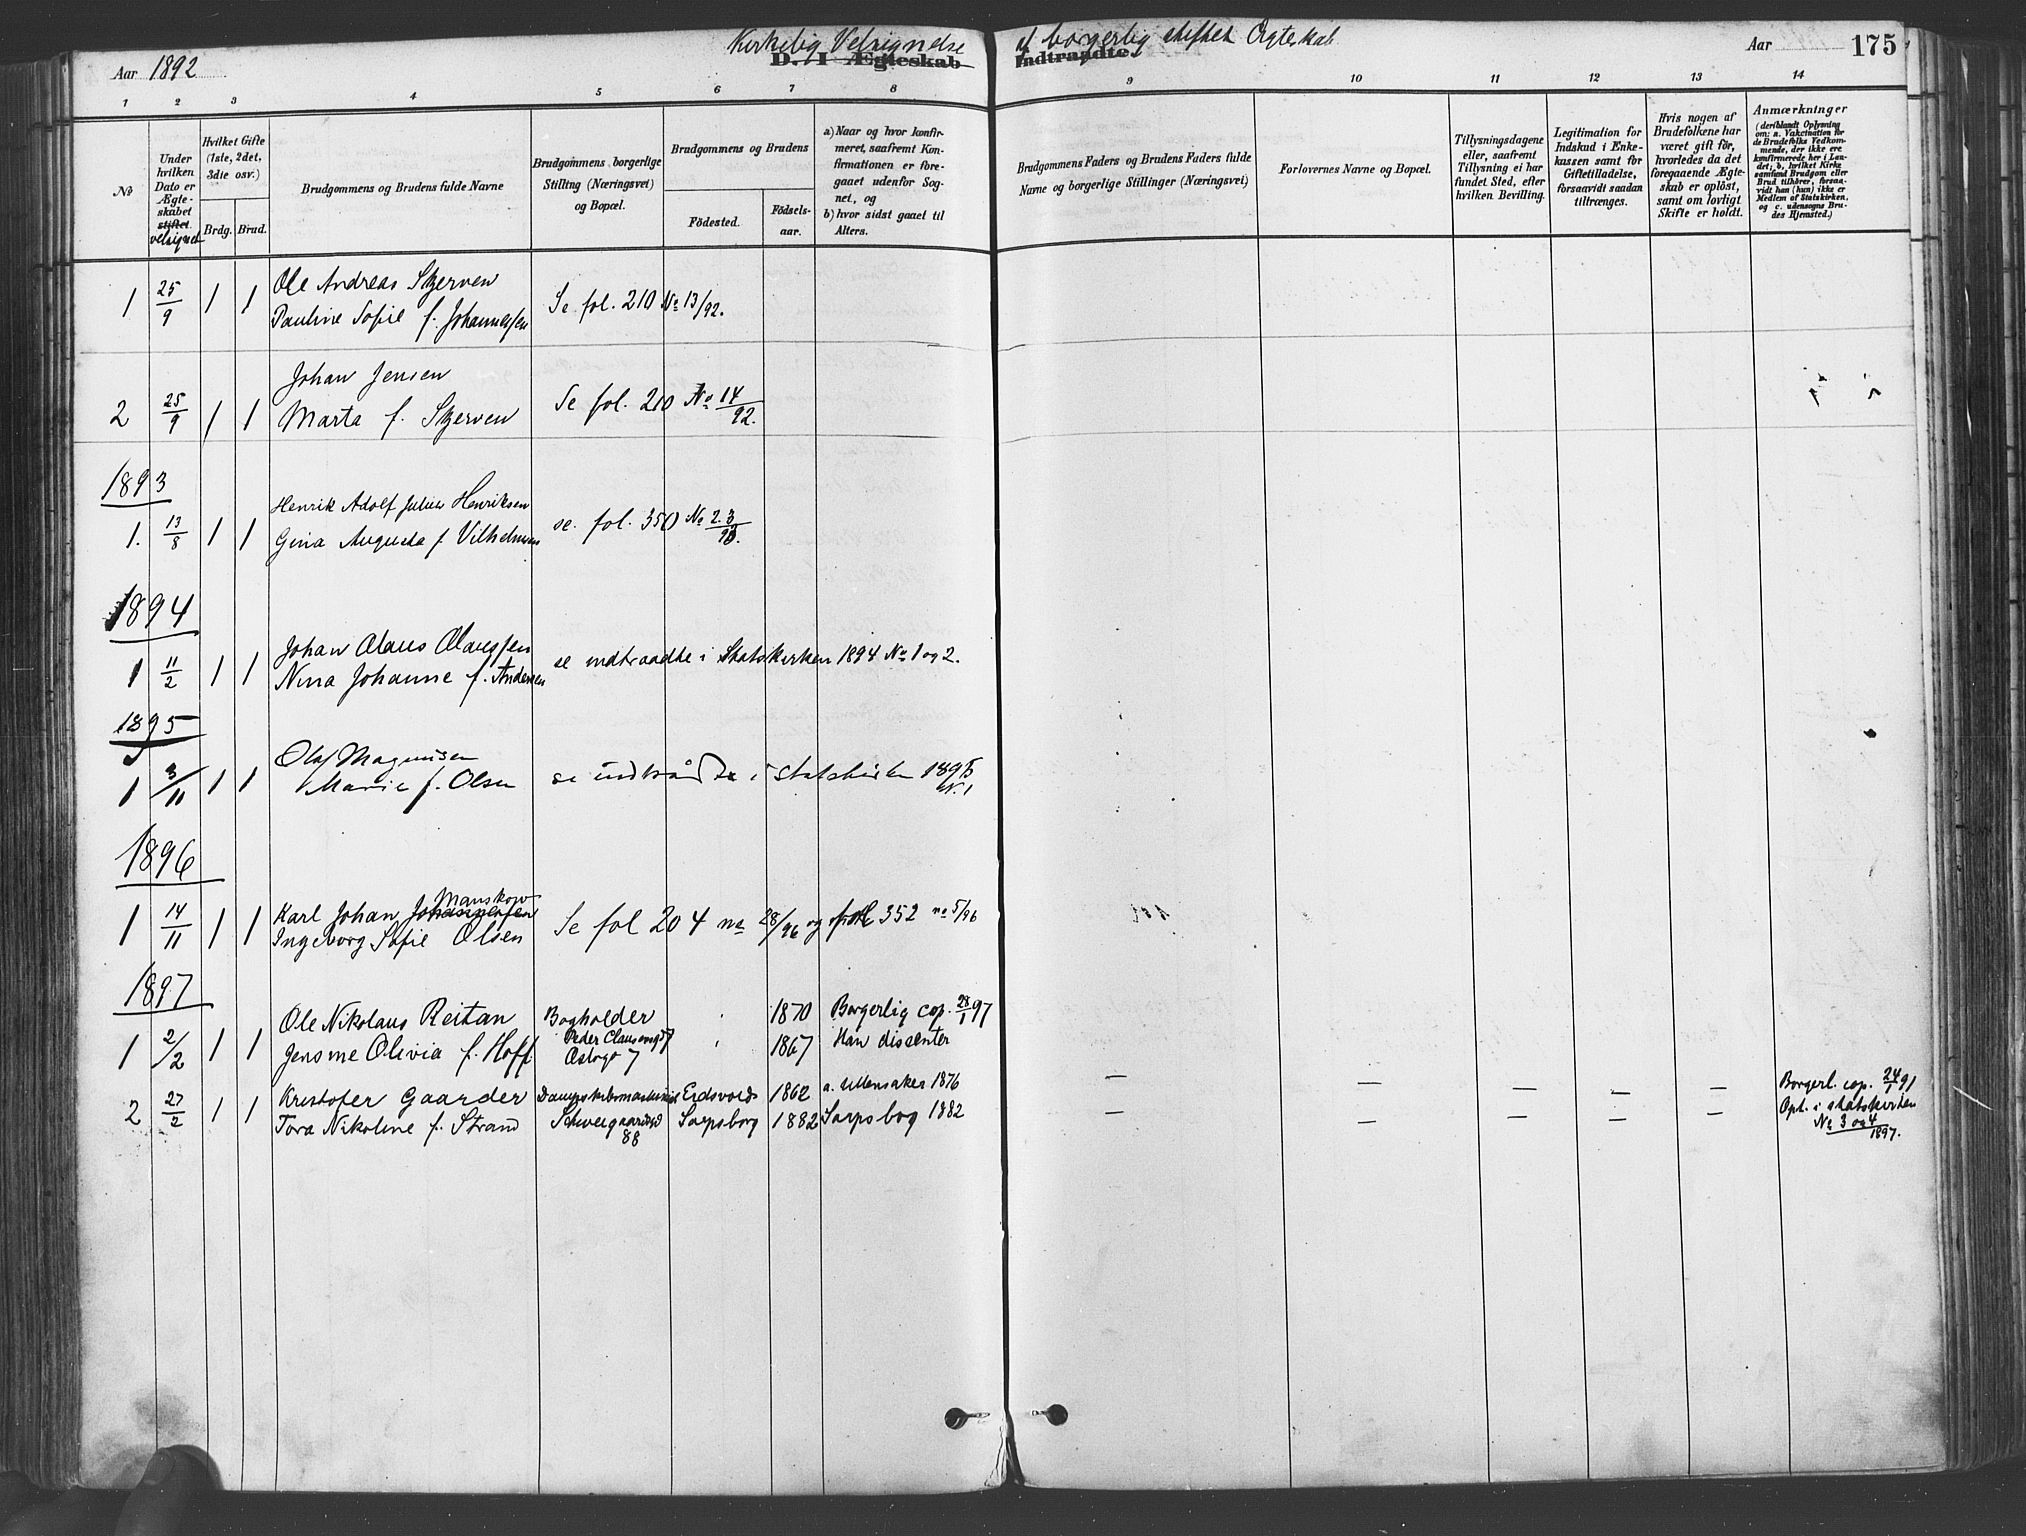 Kirkelig Velsignelse af borgerlig stiftet Ægteskab
Aar 1892
D. I Ægteskab Indtraadte.
Aar
175
1 2 3 4 5 6 7 8 9 10 11 12 13 14
№
Under hvilken Dato er Ægteskabet stiftet velsignet
Hvilket Gifte (1ste, 2det, 3die osv.)
Brdg. Brud.
Brudgommens og Brudens fulde Navne
Brudgommens borgerlige Stilling (Næringsvei) og Bopæl.
Brudgommens og Brudens
Fødested.
Fødselsaar.
a) Naar og hvor konfirmeret, saafremt Konfirmationen er foregaaet udenfor Sognet, og
b) hvor sidst gaaet til Alters.
Brudgommens Faders og Brudens Faders fulde Navne og borgerlige Stillinger (Næringsvei)
Forlovernes Navne og Bopæl.
Tillysningsdagene eller, saafremt Tillysning ei har fundet Sted, efter hvilken Bevilling.
Legitimation for Indskud i Enkekassen samt for Giftetilladelse, forsaavidt saadan tiltrænges.
Hvis nogen af Brudefolkene har været gift før, hvorledes da det foregaaende Ægteskab er opløst, samt om lovligt Skifte er holdt.
Anmærkninger
(deriblandt Oplysning om: a. Vakcination for de Brudefolks Vedkommende, der ikke ere konfirmerede her i Landet, b. hvilket Kirkesamfund Brudgom eller Brud tilhører, forsaavidt han (hun) ikke er Medlem af Statskirken, og c. udensogns Brudes Hjemsted.)
1 25/9 1 1 Ole Andreas Skjerven
Pauline Sofie f. Johannessen
Se fol. 210 No 13/92.
Johan Jensen
2 25/9 1 1 Marta f. Skjerven
Se fol. 210 No 14/92.
1893
Henrik Adolf Julius Henriksen
1. 13/8 1 1 Gina Augusta f. Vilhelmsen
se. fol. 350 No 23/93.
1894
Johan Olaus Olaussen
1 11/2 1 1 Nina Johanne f. Andersen
se indtraadte i Statskirken 1894 No 1 og 2.
1895
Olaf Magnusen
1 3/11 1 1 Marie f. Olsen
se indtrådte i statskirken 1895
N. 1
1896
Manskow
1 14/11 1 1 Karl Johan Johannessen
Ingeborg Sofie Olsen
Se fol 204 no 28/96 og fol 352 no 5/96
1897
Ole Nikolaus Reitan Bogholder 1870 Borgerlig cop. 28/1 97
1 2/2 1 1 Jensine Olivia f. Hoff Peder Claussonsgt 7 1867 Han dissenter
2 27/2 1 1 Kristofer Gaarder Eidsvold 1862 a. Ullensaker 1876 Borgerl. cop. 24/1 91
Tora Nikoline f. Strand Schweigaardsgd 88 Sarpsborg 1882 Sarpsbog 1882 Opt. i statskirken
No 3 og 4
1897.